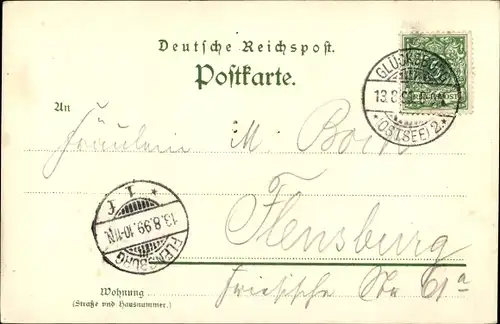 Deutsche Reichspost.
Postkarte.
GLÜCKSBURG
13.8.99
* (OSTSEE) 2. *
An
Fräulein M. Bock
* 1 F
13.8.99.10-11N.
FLENSBURG
Flensburg
Friesische Str 61a
Wohnung
(Straße und Hausnummer.)